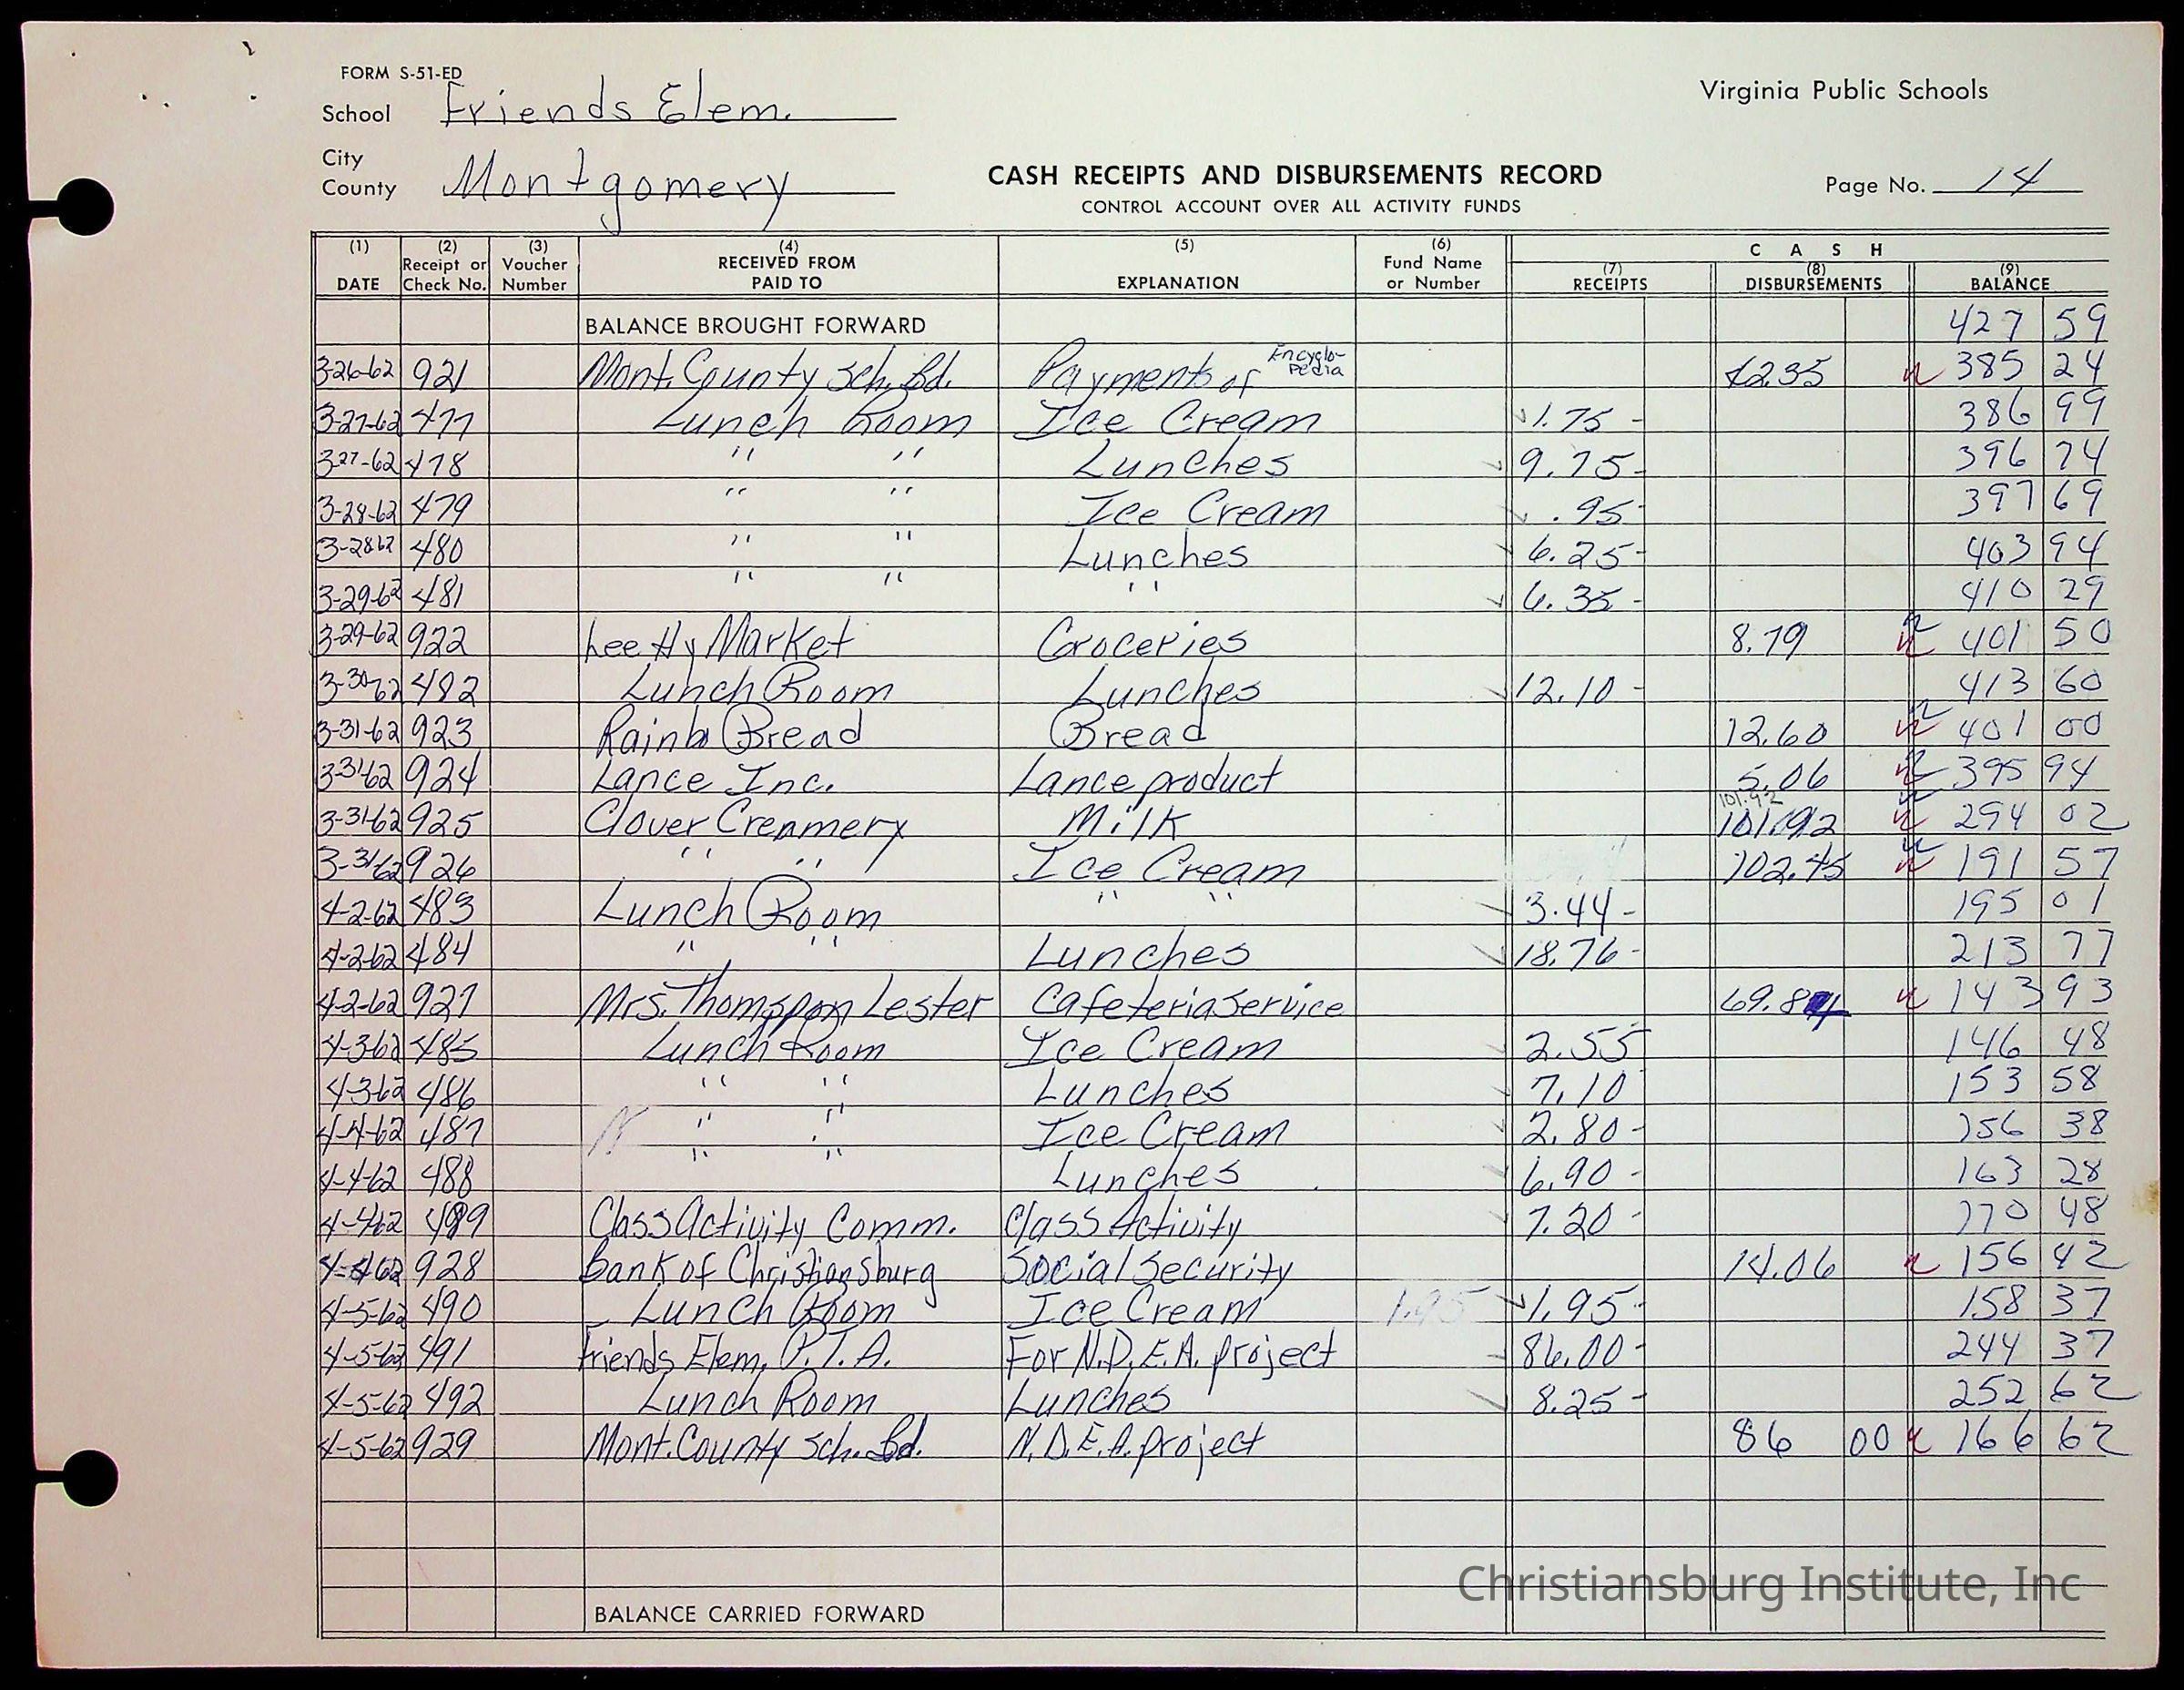 FORM S-51-ED
Virginia Public Schools
School Friends Elem.
City
County Montgomery
CASH RECEIPTS AND DISBURSEMENTS RECORD
CONTROL ACCOUNT OVER ALL ACTIVITY FUNDS
Page No. 14
(1) (2) (3) (4) (5) (6) C A S H
DATE Receipt or Check No. Voucher Number RECEIVED FROM PAID TO EXPLANATION Fund Name or Number (7) RECEIPTS (8) DISBURSEMENTS (9) BALANCE
BALANCE BROUGHT FORWARD 427 59
3-26-62 921 Mont. County Sch. Bd. Payments of Encyclo-pedia 42.35 385 24
3-27-62 477 Lunch Room Ice Cream 1.75 - 386 99
3-27-62 478 " " Lunches 9.75 - 396 74
3-28-62 479 " " Ice Cream .95 - 397 69
3-28 62 480 " " Lunches 6.25 - 403 94
3-29-62 481 " " " 6.35 - 410 29
3-29-62 922 Lee Hy Market Groceries 8.79 401 50
3-30-62 482 Lunch Room Lunches 12.10 - 413 60
3-31-62 923 Rainbo Bread Bread 12.60 401 00
3-31-62 924 Lance Inc. Lance product 5.06 395 94
101.92
3-31-62 925 Clover Creamery Milk 101.92 294 02
3-31-62 926 " " Ice Cream 102.45 191 57
4-2-62 483 Lunch Room " " 3.44 - 195 01
4-2-62 484 " " Lunches 18.76 - 213 77
4-2-62 927 Mrs. Thompson Lester Cafeteria Service 69.84 143 93
4-3-62 485 Lunch Room Ice Cream 2.55 146 48
4-3-62 486 " " Lunches 7.10 153 58
4-4-62 487 " " Ice Cream 2.80 - 156 38
4-4-62 488 " " Lunches 6.90 - 163 28
4-4-62 489 Class Activity Comm. Class Activity 7.20 - 170 48
4-4-62 928 Bank of Christiansburg Social Security 14.06 156 42
4-5-62 490 Lunch Room Ice Cream 1.95 1.95 - 158 37
4-5-62 491 Friends Elem. P.T.A. For N.D.E.A. project 86.00 - 244 37
4-5-62 492 Lunch Room Lunches 8.25 - 252 62
4-5-62 929 Mont. County Sch. Bd. N.D.E.A. project 86 00 166 62
BALANCE CARRIED FORWARD
Christiansburg Institute, Inc